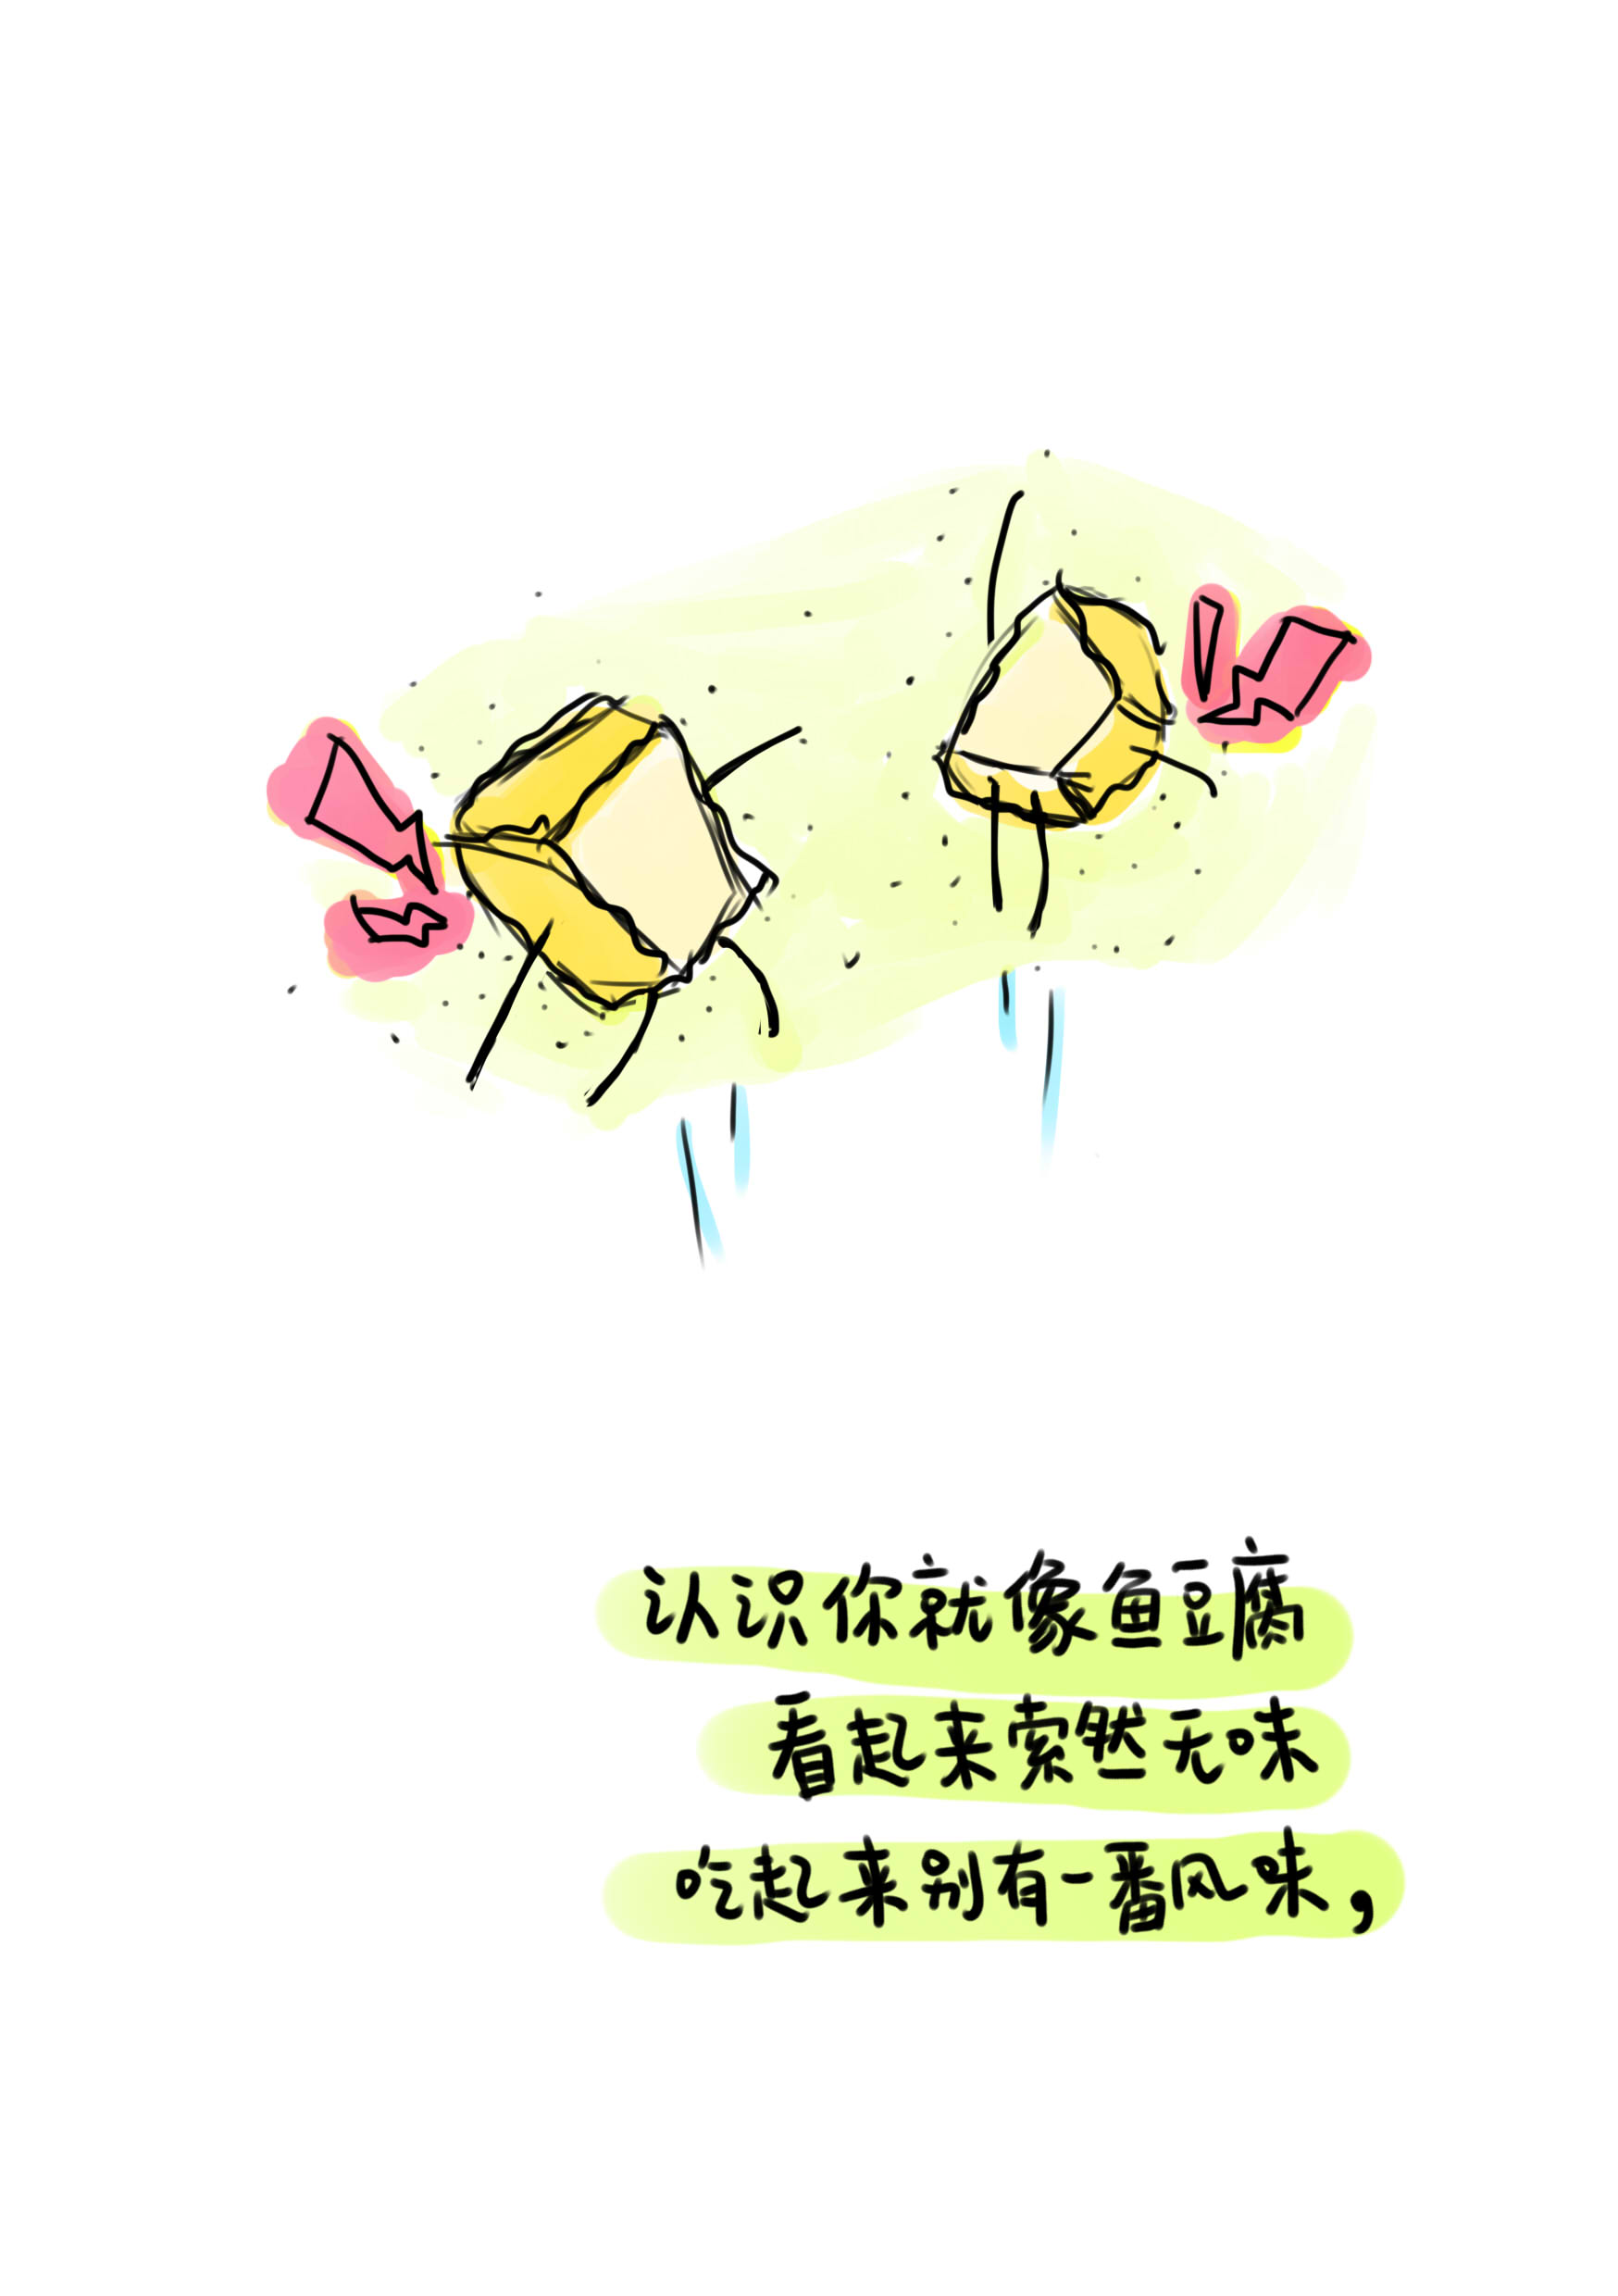 认识你就像鱼豆腐
看起来索然无味
吃起来别有一番风味，